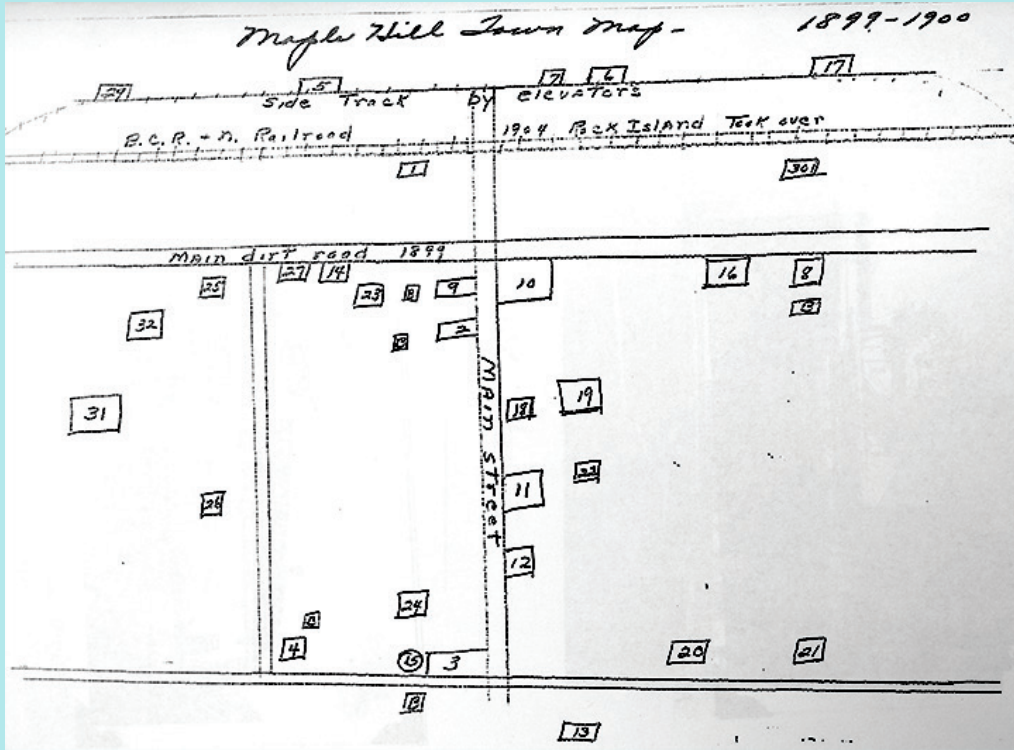 Maple Hill Town Map - 1899-1900
29 5 7 6 17
Side Track by elevators
B.C.R. + N. Railroad 1904 Rock Island Took over
1 301
Main dirt road 1899
25 27 14 23 B 9 10 16 8
32 2 B
31 18 19
Main Street
26 11 22
12
24
4 15 3 20 21
B
13